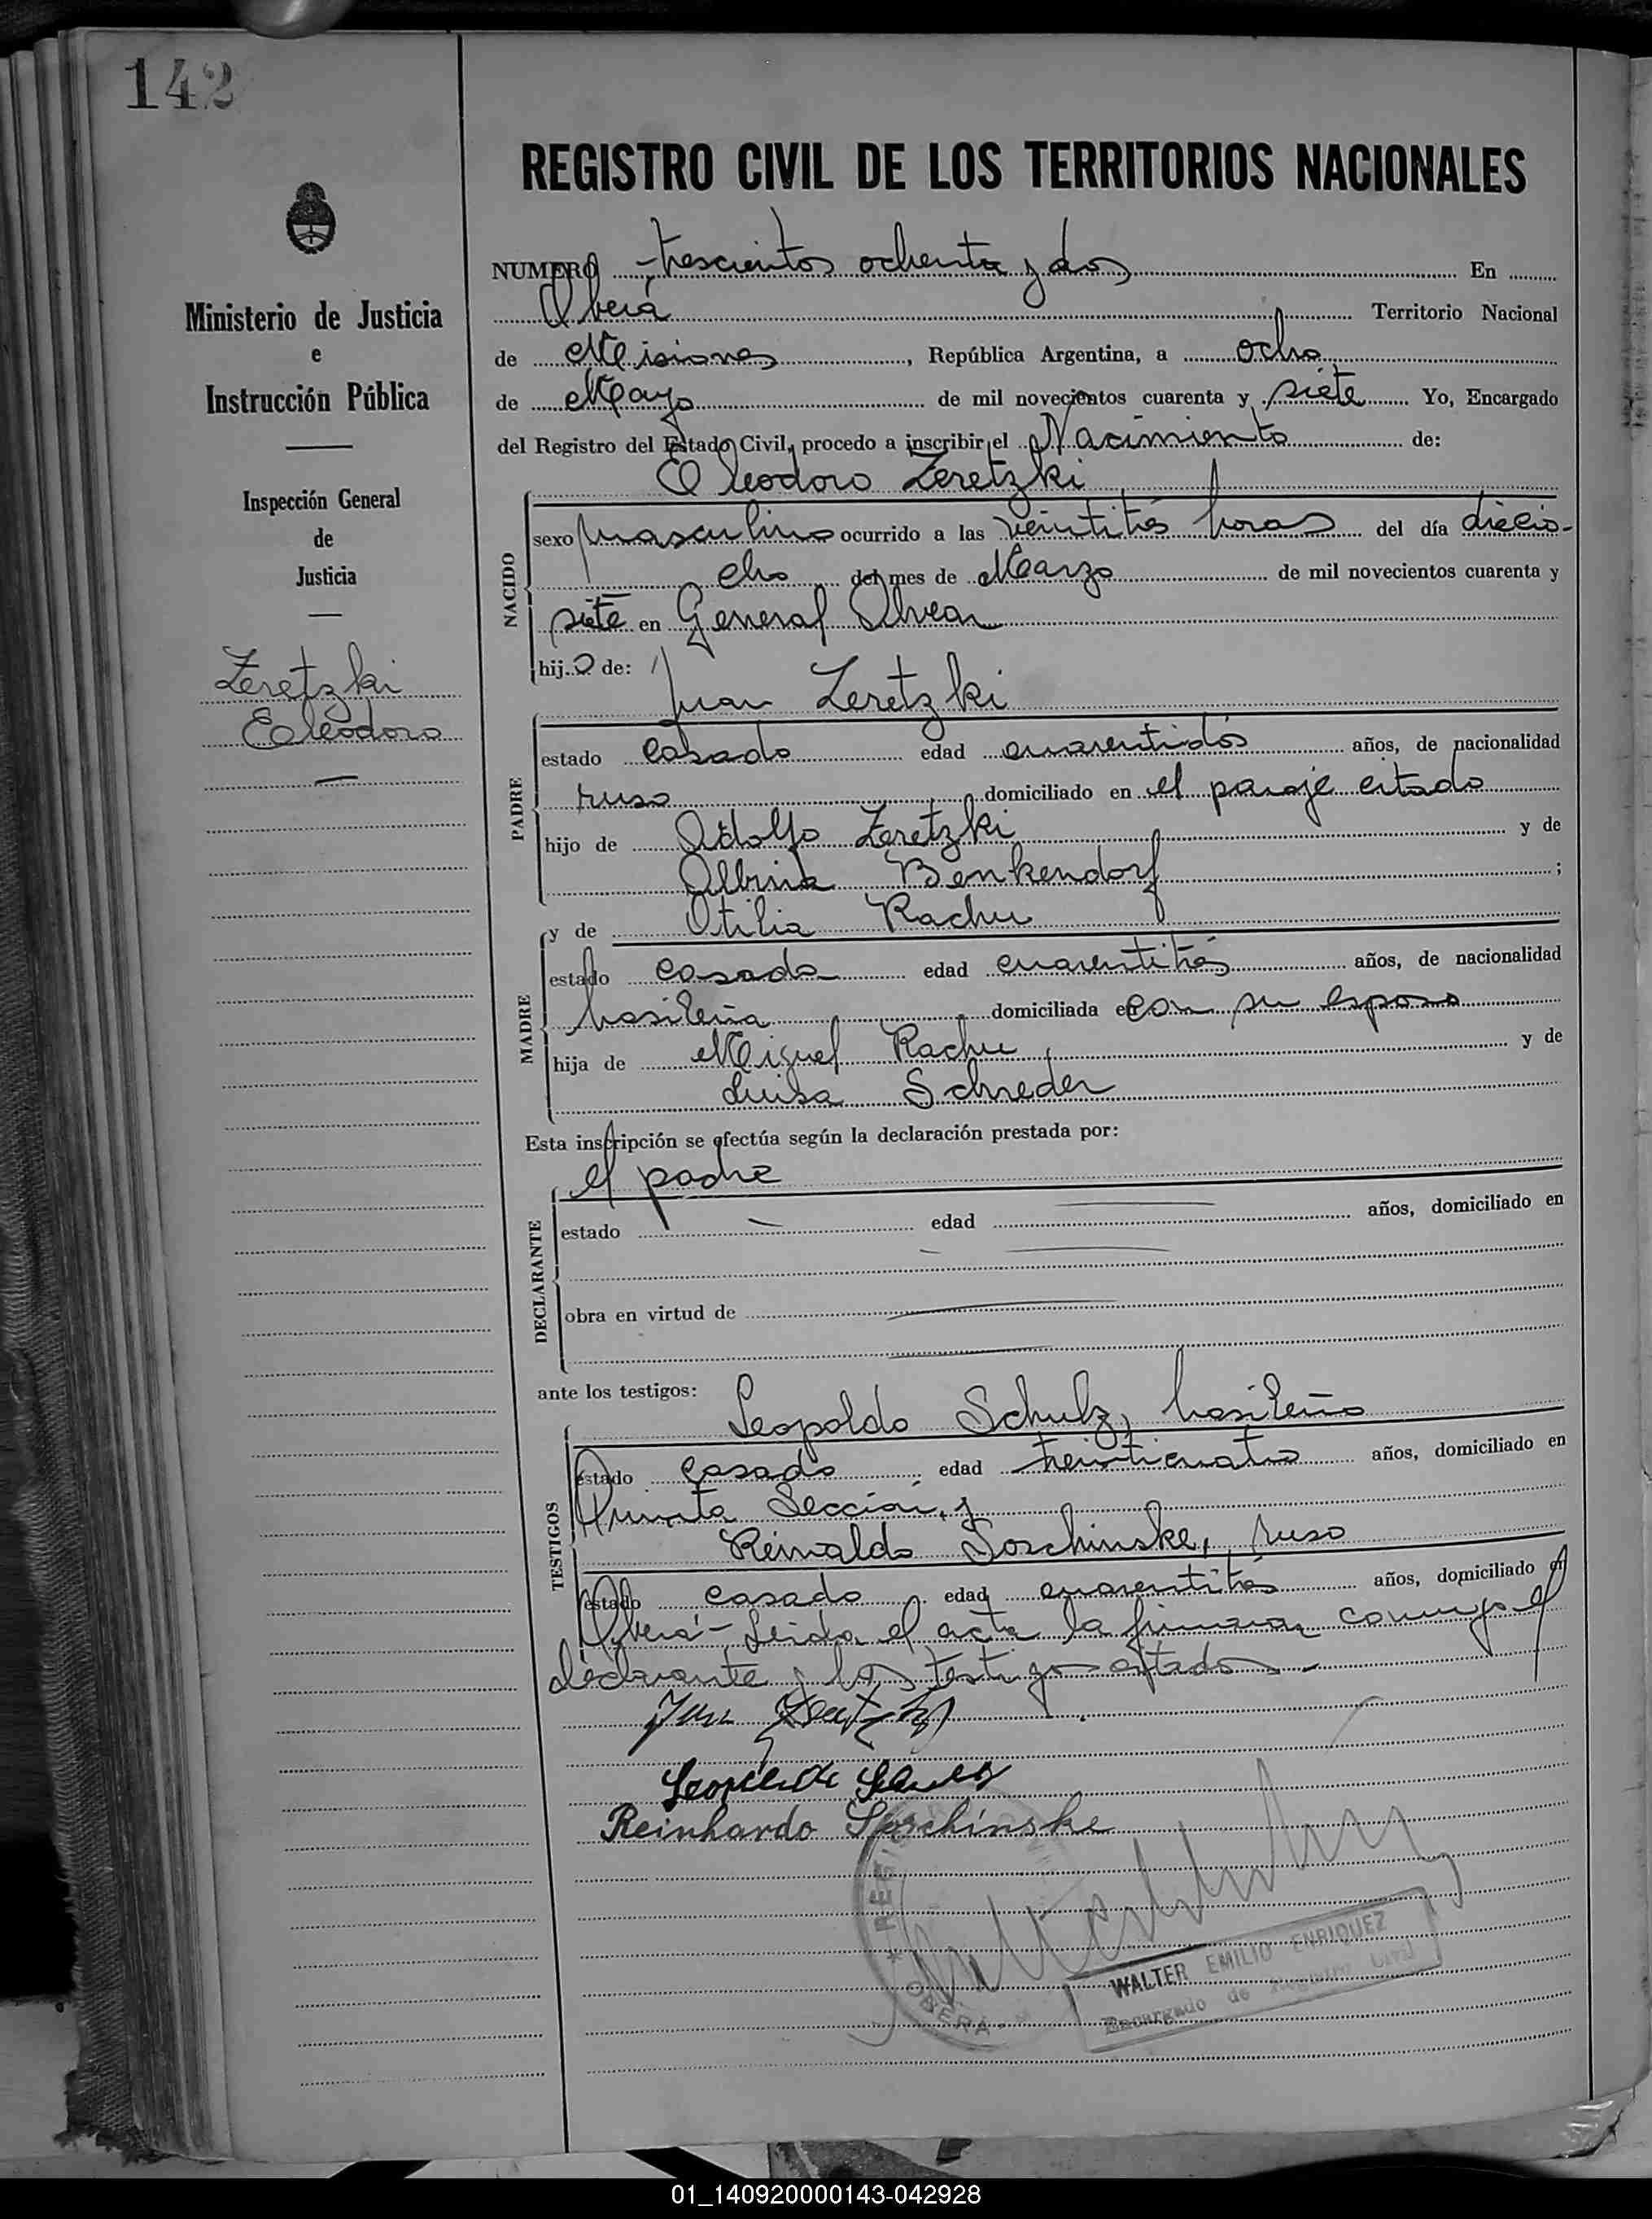 142
REGISTRO CIVIL DE LOS TERRITORIOS NACIONALES
Ministerio de Justicia
e
Instrucción Pública
Inspección General
de
Justicia
Zeretzki
Eleodoro
NUMERO trescientos ochenta y dos En
Oberá Territorio Nacional
de Misiones, República Argentina, a ocho
de Mayo de mil novecientos cuarenta y siete Yo, Encargado
del Registro del Estado Civil, procedo a inscribir el Nacimiento de:
Eleodoro Zeretzki
NACIDO
sexo masculino ocurrido a las veintitrés horas del día diecio-
cho del mes de Marzo de mil novecientos cuarenta y
siete en General Alvear
hijo de:
Juan Zeretzki
PADRE
estado casado edad cuarentidós años, de nacionalidad
ruso domiciliado en el paraje citado
hijo de Adolfo Zeretzki y de
Albina Benkendorf ;
y de Otilia Rachu
MADRE
estado casada edad cuarentitrés años, de nacionalidad
brasileña domiciliada en con su esposo
hija de Miguel Rachu y de
Luisa Schreder
Esta inscripción se efectúa según la declaración prestada por:
el padre
DECLARANTE
estado edad años, domiciliado en
obra en virtud de
ante los testigos: Leopoldo Schulz, brasileño
TESTIGOS
estado casado edad treinticuatro años, domiciliado en
Quinta Sección, y
Reinaldo Sorchinske, ruso
estado casado edad cuarentitrés años, domiciliado en
Oberá - Leida el acta la firman conmigo el
declarante y los testigos citados.-
Reinhardo Sorchinske
REGIS
OBERA
WALTER EMILIO ENRIQUEZ
Encargado de Registro Civil
01_140920000143-042928